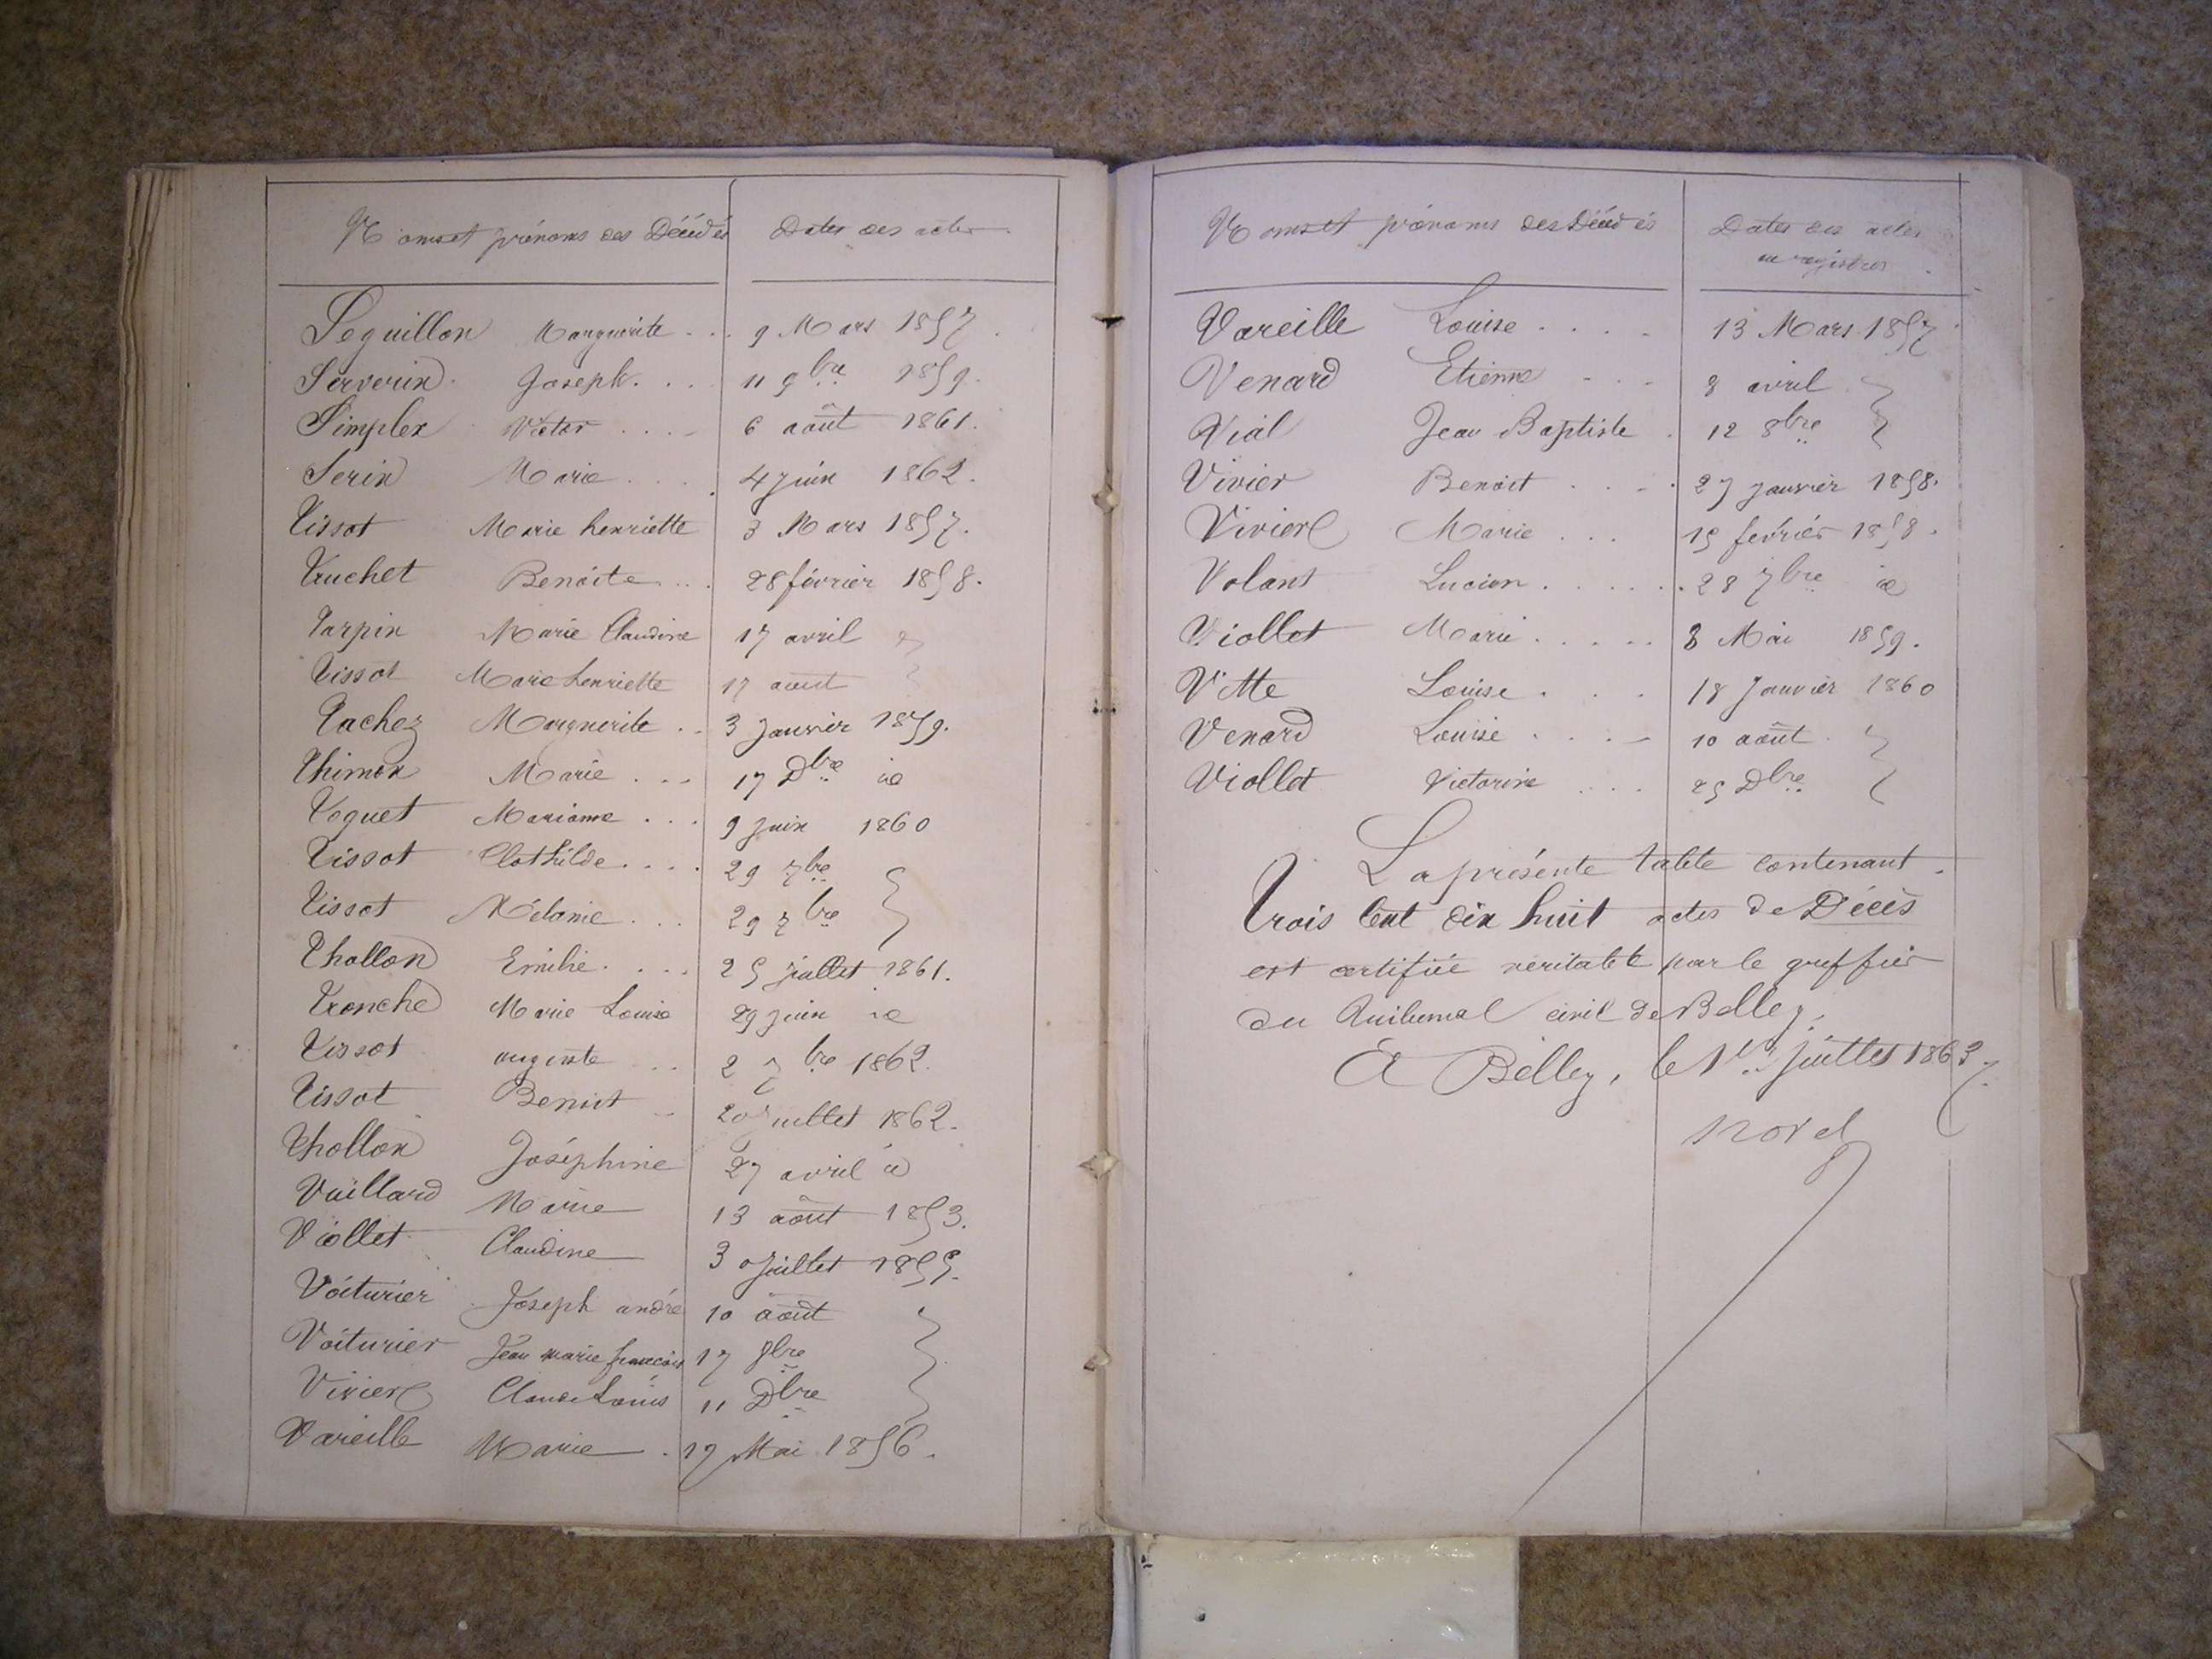 Noms et prénoms des Décédés Dates des actes
Seguillon Marguerite 9 Mars 1857.
Serverin Joseph 11 9bre 1859.
Simplex Victor 6 août 1861.
Serin Marie 4 Juin 1862.
Tissot Marie henriette 3 Mars 1857.
Truchet Benoite 28 février 1858.
Tarpin Marie Claudine 17 avril
Tissot Marie henriette 17 aout
Tachez Marguerite 3 Janvier 1859.
Thimon Marie 17 Dbre id
Toguet Marianne 9 Juin 1860
Tissot Clothilde 29 7bre
Tissot Mélanie 29 7bre
Thollon Emilie 25 juillet 1861.
Tronche Marie Louise 29 juin id
Tissot auguste 2 7bre 1862.
Tissot Benoit 20 Juillet 1862.
Thollon Joséphine 27 avril id
Vaillard Marie 13 août 1853.
Viollet Claudine 30 Juillet 1855.
Voiturier Joseph andré 10 août
Voiturier Jean marie françois 17 9bre
Vivier Claude Louis 11 Dbre
Vareille Marie 17 Mai 1856.
Noms et prénoms des Décédés Dates des actes
au registres
Vareille Louise 13 Mars 1857
Venard Etienne 8 avril
Vial Jean Baptiste 12 8bre
Vivier Benoit 27 Janvier 1858.
Vivier Marie 15 février 1858.
Volant Lucien 28 7bre id
Viollet Marie 8 Mai 1859.
Vitte Louise 18 Janvier 1860
Venard Louise 10 août
Viollet Victorine 25 Dbre
La présente table contenant
Trois Cent dix huit actes de Décès
est certifiée veritable par le greffier
du Tribunal civil de Belley.
A Belley, le 1er Juillet 1863